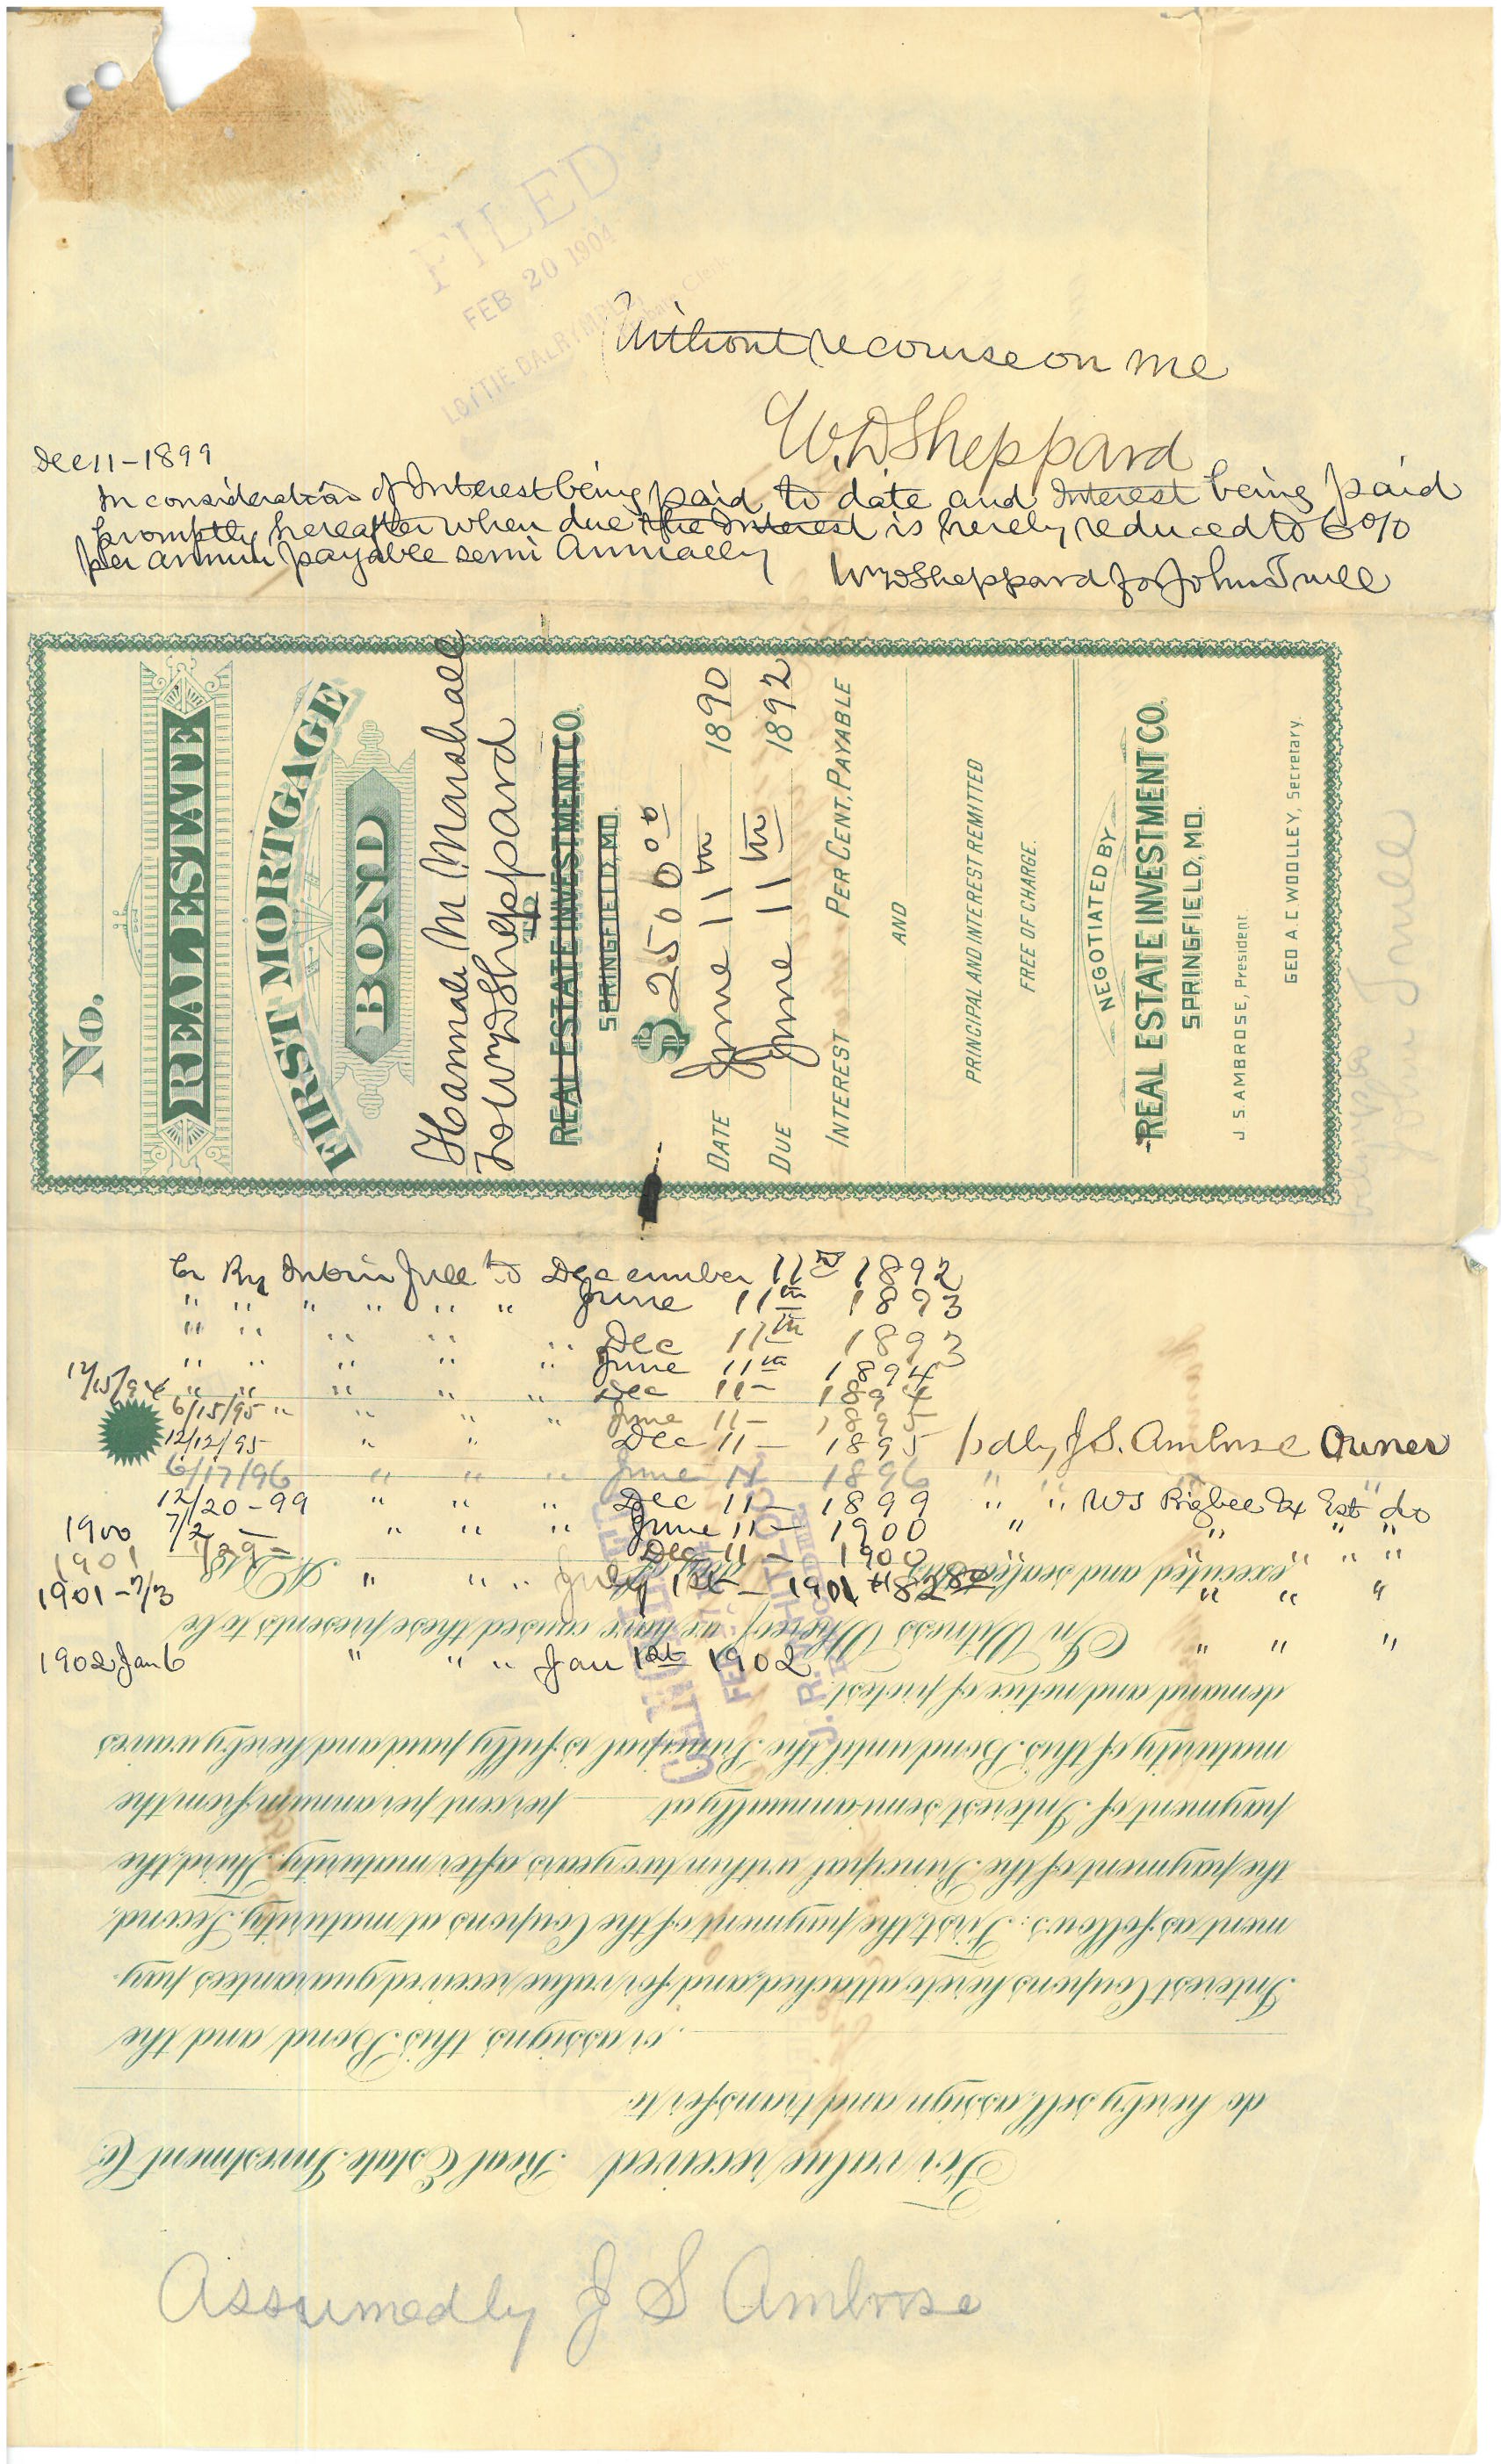 FILED
FEB 20 1904
LOTTIE DALRYMPLE
Clerk
Without recourse on me
W.D Sheppard
Dec 11 - 1899
In consideration of Interest being paid to date and Interest being paid
promptly hereafter when due the Interest is hereby reduced to 6%
per annum payable semi Annually
Wm D Sheppard for John
No.
REAL ESTATE
FIRST MORTGAGE
BOND
Hannah M Marshall
To Wm D Sheppard
TO
REAL ESTATE INVESTMENT CO.
SPRINGFIELD, MO.
$ 2500 00
DATE June 11th 1890
DUE June 11th 1892
INTEREST PER CENT, PAYABLE
AND
PRINCIPAL AND INTEREST REMITTED
FREE OF CHARGE.
NEGOTIATED BY
REAL ESTATE INVESTMENT CO.
SPRINGFIELD, MO.
J. S. AMBROSE, President
GEO A. C WOOLLEY, Secretary.
John
Cr By Int in full to December 11th 1892
" " " " " " June 11th 1893
" " " " " Dec 11th 1893
" " " " " June 11th 1894
12/15/94 " " " " " Dec 11 - 1894
6/15/95 " " " " June 11 - 1895
12/12/95 " " Dec 11 - 1895 pd by J.S. Ambrose Owner
6/17/96 " " " June 11 1896 " " "
12/20-99 " " " Dec 11 - 1899 " " WS Ex Est do
1900 7/2 - " " " June 11 - 1900 " " " "
1901 Dec 11 - 1900 " " " "
1901 - 7/3 " " " July 1st - 1901 " " "
1902 Jan 6 " " " Jan 1st 1902 " " "
J. R. WHITLOCK
For value received Real Estate Investment Co.
do hereby sell, assign and transfer to
or assigns, this Bond and the
Interest Coupons hereto attached, and for value received guarantees pay-
ment as follows: First, the payment of the Coupons at maturity, Second,
the payment of the Principal within two years after maturity, Third, the
payment of Interest semi-annually at percent per annum from the
maturity of this Bond until the Principal is fully paid and hereby waives
demand and notice of protest.
In Witness Whereof we have caused these presents to be
executed and sealed this day of A.D. 18
Assumed by J S Ambrose